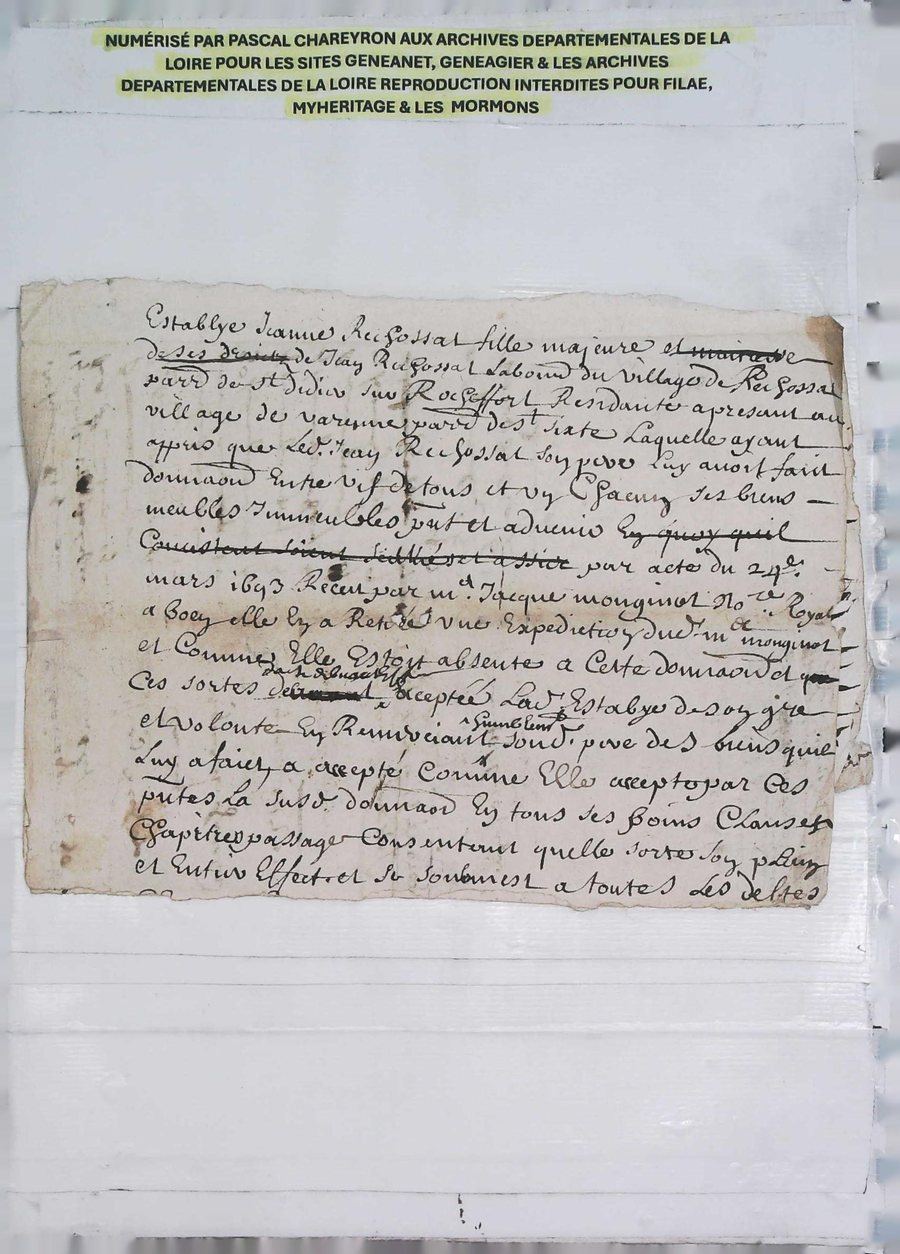 NUMÉRISÉ PAR PASCAL CHAREYRON AUX ARCHIVES DEPARTEMENTALES DE LA
LOIRE POUR LES SITES GENEANET, GENEAGIER & LES ARCHIVES
DEPARTEMENTALES DE LA LOIRE REPRODUCTION INTERDITES POUR FILAE,
MYHERITAGE & LES MORMONS
Establye Jeanne Rechossat fille majeure et
de ses droicts de Jean Rechossat Labourd du village de Rechossat
parr de St didier sur Rocheffort Residante apresant au
village de varenne parr de St sixte Laquelle ayant
appris que Led. Jean Rechossat son pere Luy auoit faict
donnaon Entre vifs de tous et un Chacun ses biens
meubles Immeubles pnt et aduenir En quoy quil
Concistent soient et assis par acte du 24e.
mars 1693 Receut par me. Jacque monginot Nore. Royal
a Boen elle En a Retiré vne Expediction dud. me monginot
et Comme Elle Estoit absente a Cette donnaon et que
Ces sortes aceptéé Lad. Establye de son gre
et volonte En Remerciant humblemt sond. pere des biens quil
Luy a faict, a accepté Comme Elle accepte par Ces
pntes La susd. donnaon En tous ses poins Clauses
Chapitres passage Consentant quelle sorte son plein
et Entier Effect et se soubmest a toutes Les debtes